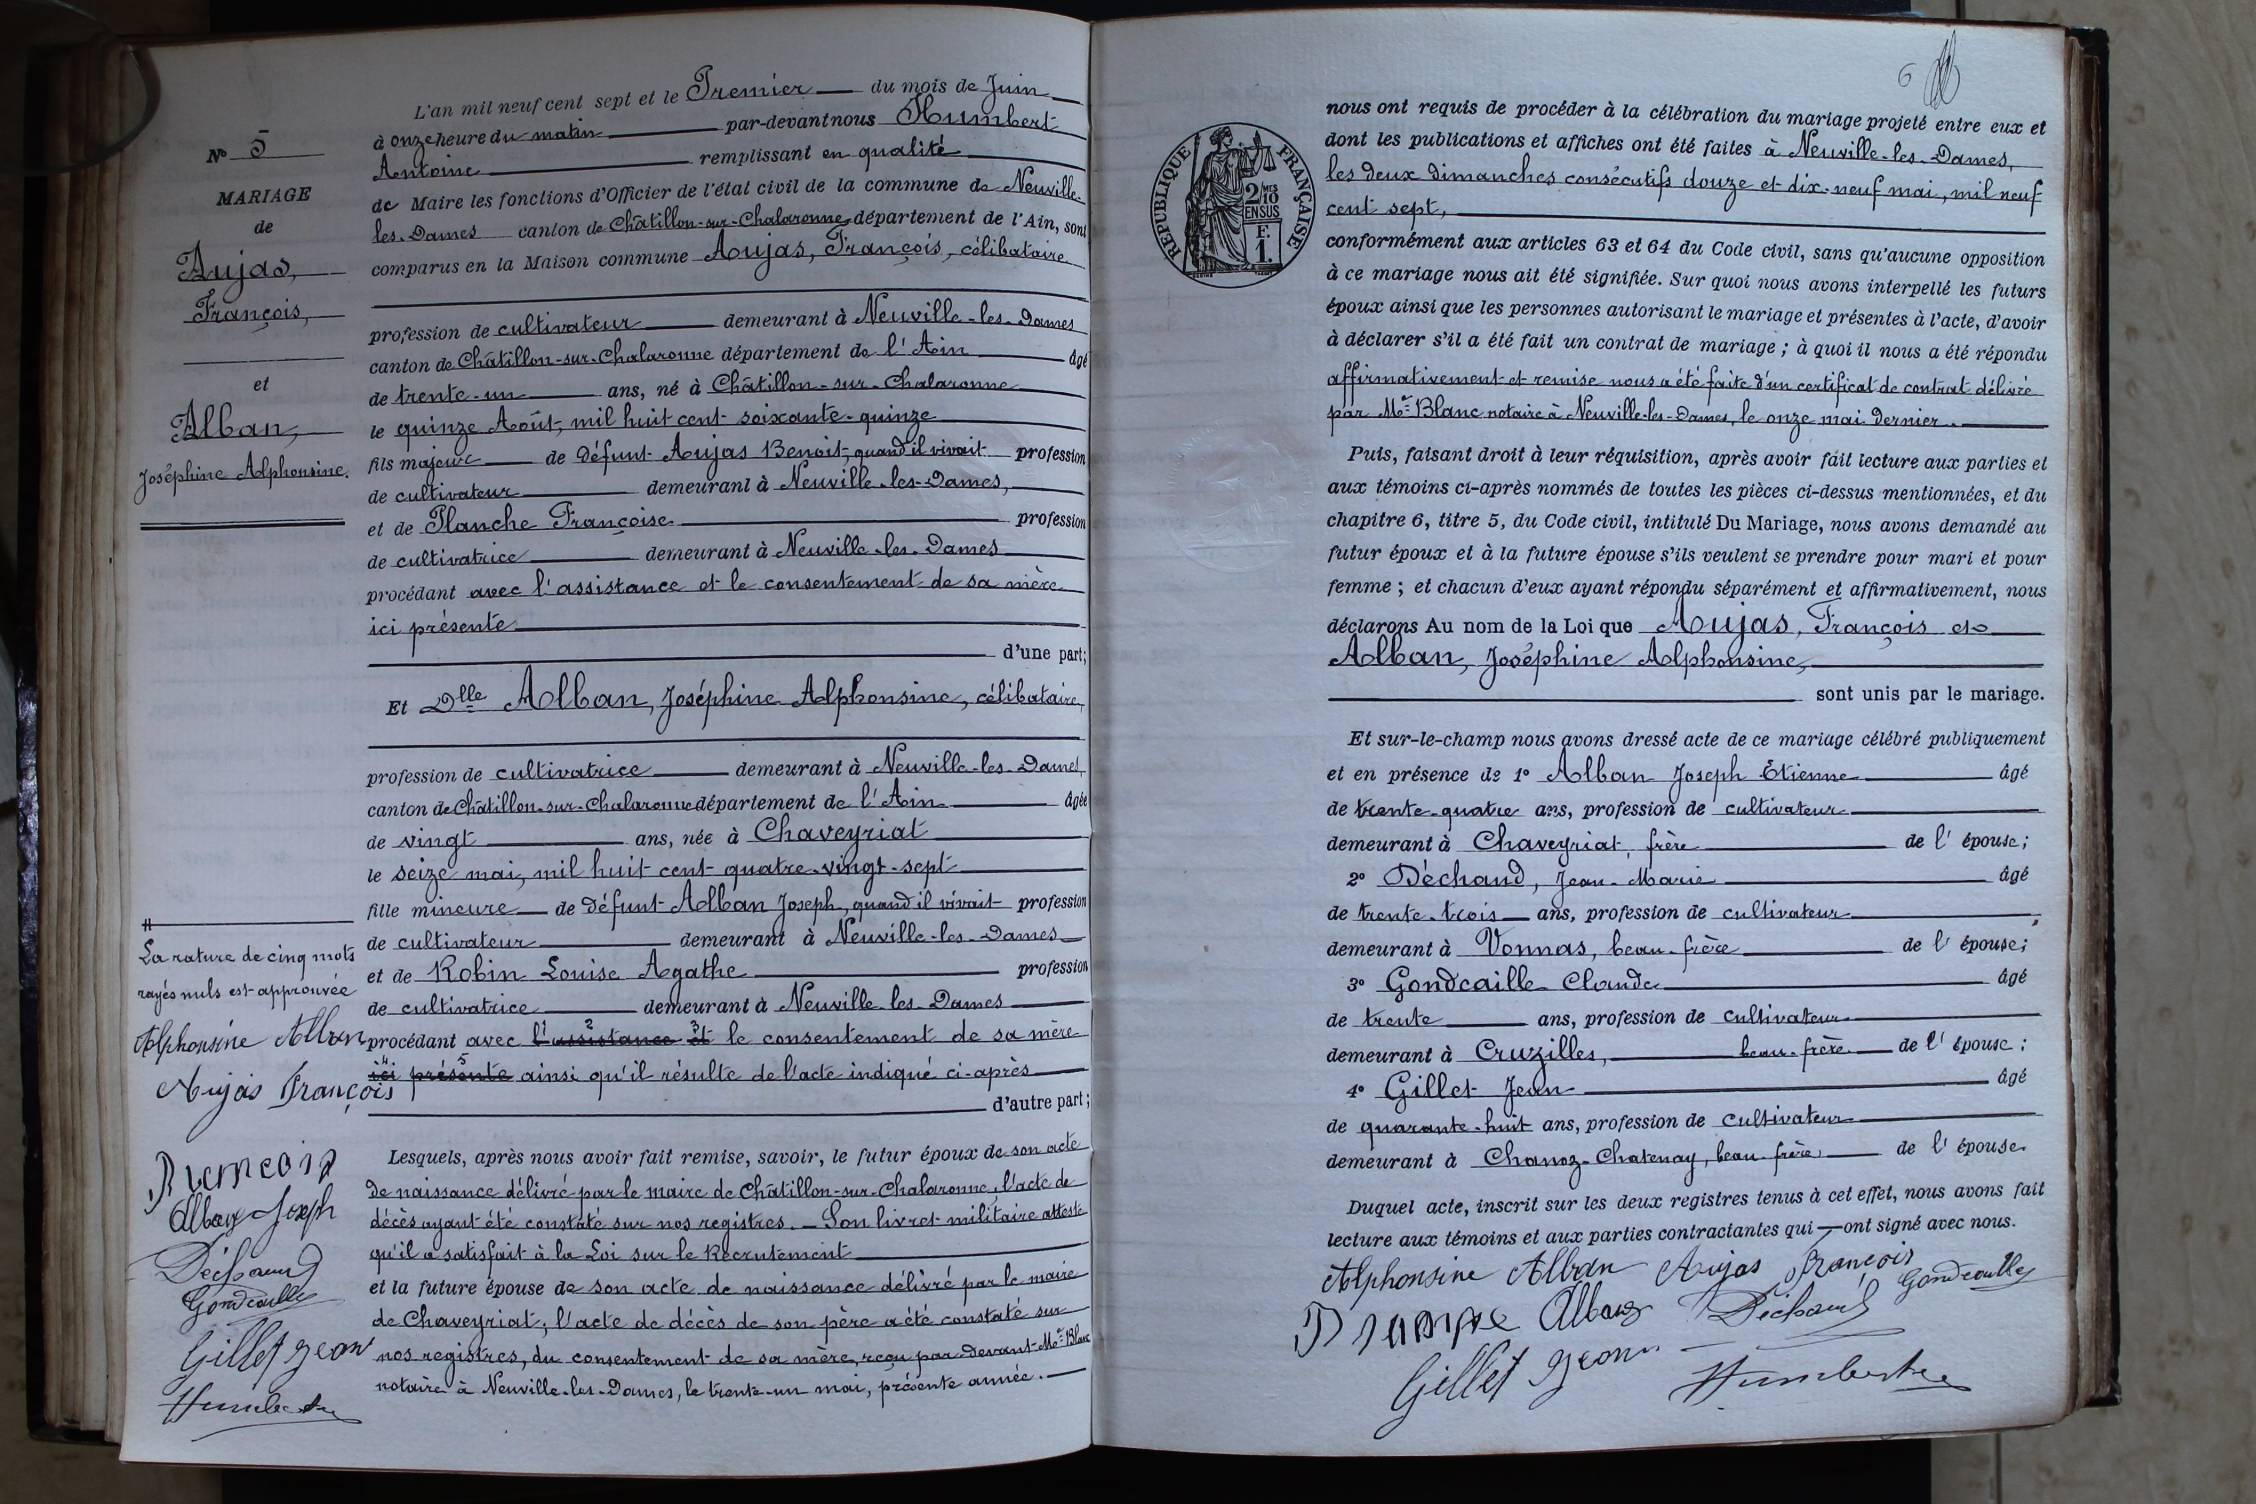 N° 5
MARIAGE
de
Aujas,
François,
et
Alban,
Joséphine Alphonsine.
L'an mil neuf cent sept et le Premier du mois de Juin
à onze heure du matin par-devant nous Humbert
Antoine remplissant en qualité
de Maire les fonctions d'Officier de l'état civil de la commune de Neuville-
les-Dames canton de Châtillon-sur-Chalaronne département de l'Ain, sont
comparus en la Maison commune Aujas, François, célibataire
profession de cultivateur demeurant à Neuville-les-Dames
canton de Châtillon-sur-Chalaronne département de l'Ain âgé
de trente-un ans, né à Châtillon-sur-Chalaronne
le quinze Août, mil huit cent soixante-quinze
fils majeur de défunt Aujas Benoit, quand il vivait profession
de cultivateur demeurant à Neuville-les-Dames,
et de Planche Françoise profession
de cultivatrice demeurant à Neuville-les-Dames
procédant avec l'assistance et le consentement de sa mère
ici présente
d'une part;
Et Dlle Alban, Joséphine Alphonsine, célibataire,
profession de cultivatrice demeurant à Neuville-les-Dames,
canton de Châtillon-sur-Chalaronne département de l'Ain âgée
de vingt ans, née à Chaveyriat
le seize mai, mil huit cent quatre-vingt-sept
fille mineure de défunt Alban Joseph, quand il vivait profession
de cultivateur demeurant à Neuville-les-Dames
et de Robin Louise Agathe profession
de cultivatrice demeurant à Neuville les-Dames
procédant avec l'1 assistance 2 et 3 le consentement de sa mère
ici 4 présente 5 ainsi qu'il résulte de l'acte indiqué ci-après
d'autre part;
La rature de cinq mots
rayés nuls est approuvée
Alphonsine Alban
Aujas François
Alban Joseph
Déchaud
Gondcaille
Gillet Jean
Humbert
Lesquels, après nous avoir fait remise, savoir, le futur époux de son acte
de naissance délivré par le maire de Châtillon-sur-Chalaronne, l'acte de
décès ayant été constaté sur nos registres. — Son livret militaire atteste
qu'il a satisfait à la Loi sur le Recrutement
et la future épouse de son acte de naissance délivré par le maire
de Chaveyriat; l'acte de décès de son père a été constaté sur
nos registres, du consentement de sa mère, reçu par-devant Me Blanc
notaire à Neuville-les-Dames, le trente-un mai, présente année.
6
RÉPUBLIQUE FRANÇAISE
2/10 MES
EN SUS
F.
1.
nous ont requis de procéder à la célébration du mariage projeté entre eux et
dont les publications et affiches ont été faites à Neuville-les-Dames,
les deux dimanches consécutifs douze et dix-neuf mai, mil neuf
cent sept,
conformément aux articles 63 et 64 du Code civil, sans qu'aucune opposition
à ce mariage nous ait été signifiée. Sur quoi nous avons interpellé les futurs
époux ainsi que les personnes autorisant le mariage et présentes à l'acte, d'avoir
à déclarer s'il a été fait un contrat de mariage; à quoi il nous a été répondu
affirmativement et remise nous a été faite d'un certificat de contrat délivré
par Me Blanc notaire à Neuville-les-Dames, le onze mai dernier.
Puis, faisant droit à leur réquisition, après avoir fait lecture aux parties et
aux témoins ci-après nommés de toutes les pièces ci-dessus mentionnées, et du
chapitre 6, titre 5, du Code civil, intitulé Du Mariage, nous avons demandé au
futur époux et à la future épouse s'ils veulent se prendre pour mari et pour
femme; et chacun d'eux ayant répondu séparément et affirmativement, nous
déclarons Au nom de la Loi que Aujas, François et
Alban, Joséphine Alphonsine,
sont unis par le mariage.
Et sur-le-champ nous avons dressé acte de ce mariage célébré publiquement
et en présence de 1° Alban Joseph Etienne âgé
de trente-quatre ans, profession de cultivateur
demeurant à Chaveyriat, frère de l'épouse;
2° Déchaud, Jean-Marie âgé
de trente-trois ans, profession de cultivateur
demeurant à Vonnas, beau-frère de l'épouse;
3° Gondcaille Claude âgé
de trente ans, profession de cultivateur
demeurant à Cruzilles, beau-frère de l'épouse;
4° Gillet Jean âgé
de quarante-huit ans, profession de cultivateur
demeurant à Chanoz-Chatenay, beau-frère, de l'épouse.
Duquel acte, inscrit sur les deux registres tenus à cet effet, nous avons fait
lecture aux témoins et aux parties contractantes qui — ont signé avec nous.
Alphonsine Alban Aujas François Gondcaille
Alban Déchaud
Gillet Jean Humbert